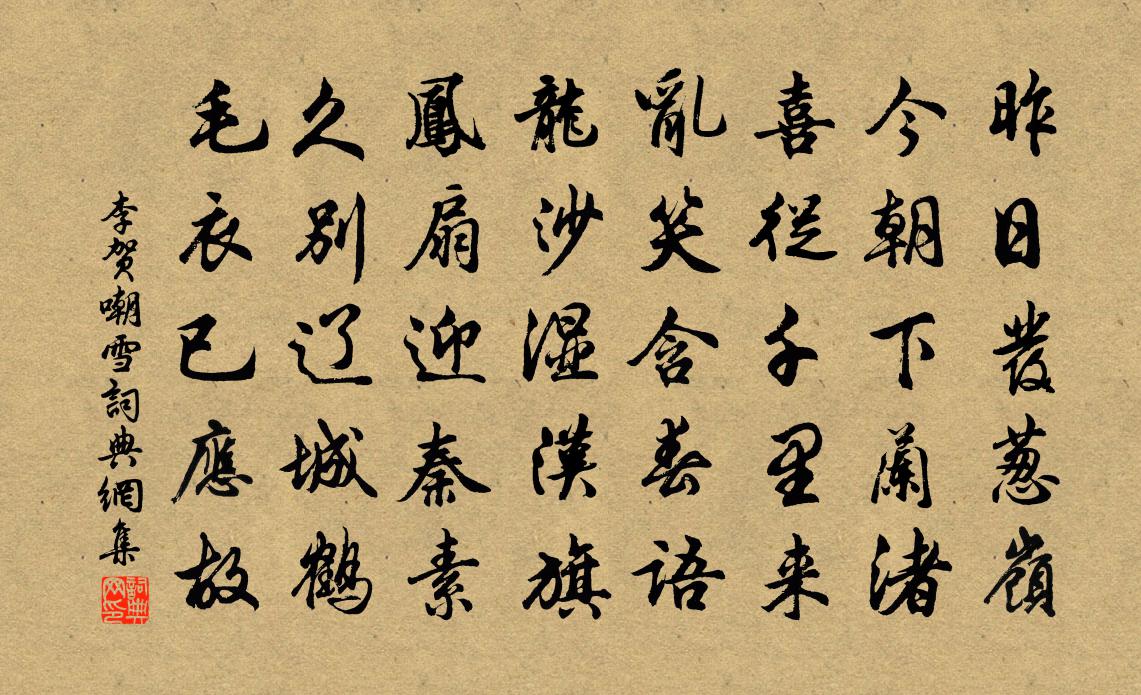 昨日發葱嶺
今朝下蘭渚
喜從千里来
亂笑含春语
龍沙湿漢旗
鳳扇迎秦素
久别辽城鹤
毛衣已應故
李贺嘲雪詞典網集
詞典网印